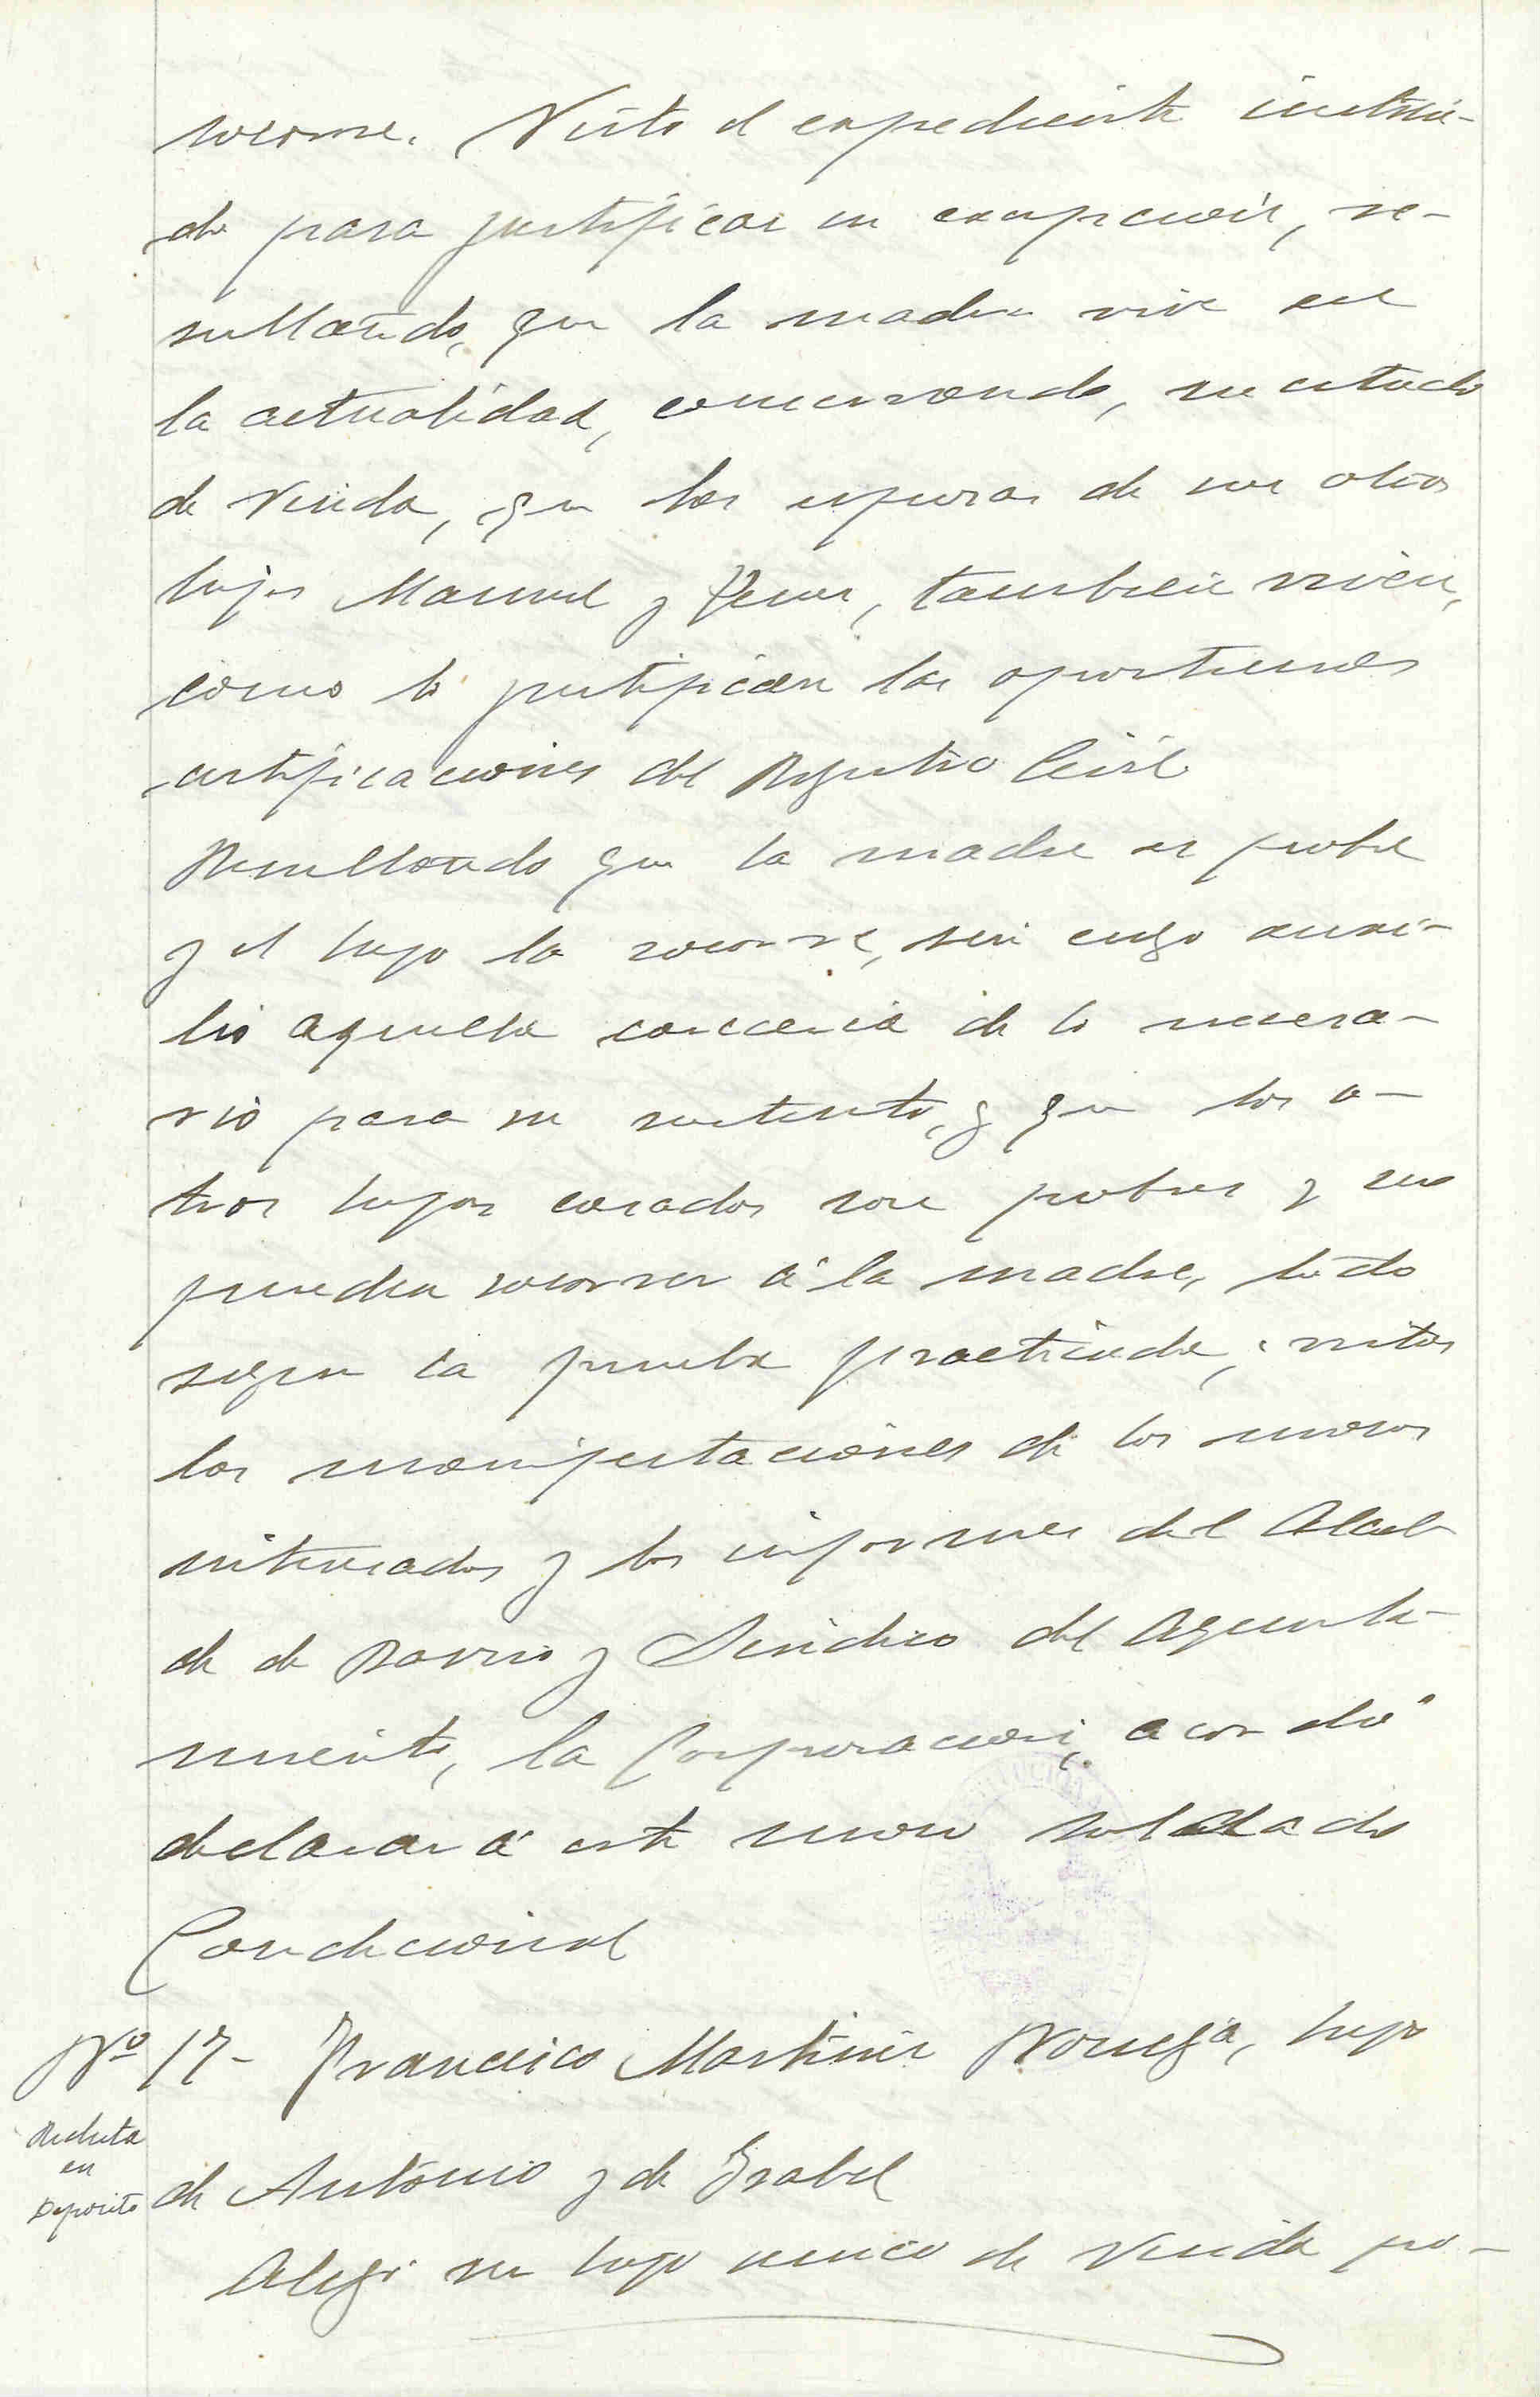 socorre. Visto el expediente instrui-
do para justificar su excepción, re-
sultando, que la madre vive en
la actualidad, conservando, su estado
de Viuda, que las esposas de sus otros
hijos Manuel y Jesus, también viven,
como lo justifican las oportunas
certificaciones del Registro Civil
Resultando que la madre es pobre
y el hijo la socorre, sin cuyo auxi-
lio aquella carecería de lo necesa-
rio para su sustento, y que los o-
tros hijos casados son pobres y no
pueden socorrer á la madre, todo
segun la prueba practicada; vistos
las manifestaciones de los mozos
interesados y los informes del Alcal
de de Barrio y Sindico del Ayunta-
miento, la Corporación, acordó
declarar á este mozo soldado
Condicional
Nº 17- Francisco Martínez Noriega, hijo
Recluta
en
Deposito
de Antonio y de Isabel
Alegó ser hijo unico de Viuda po-